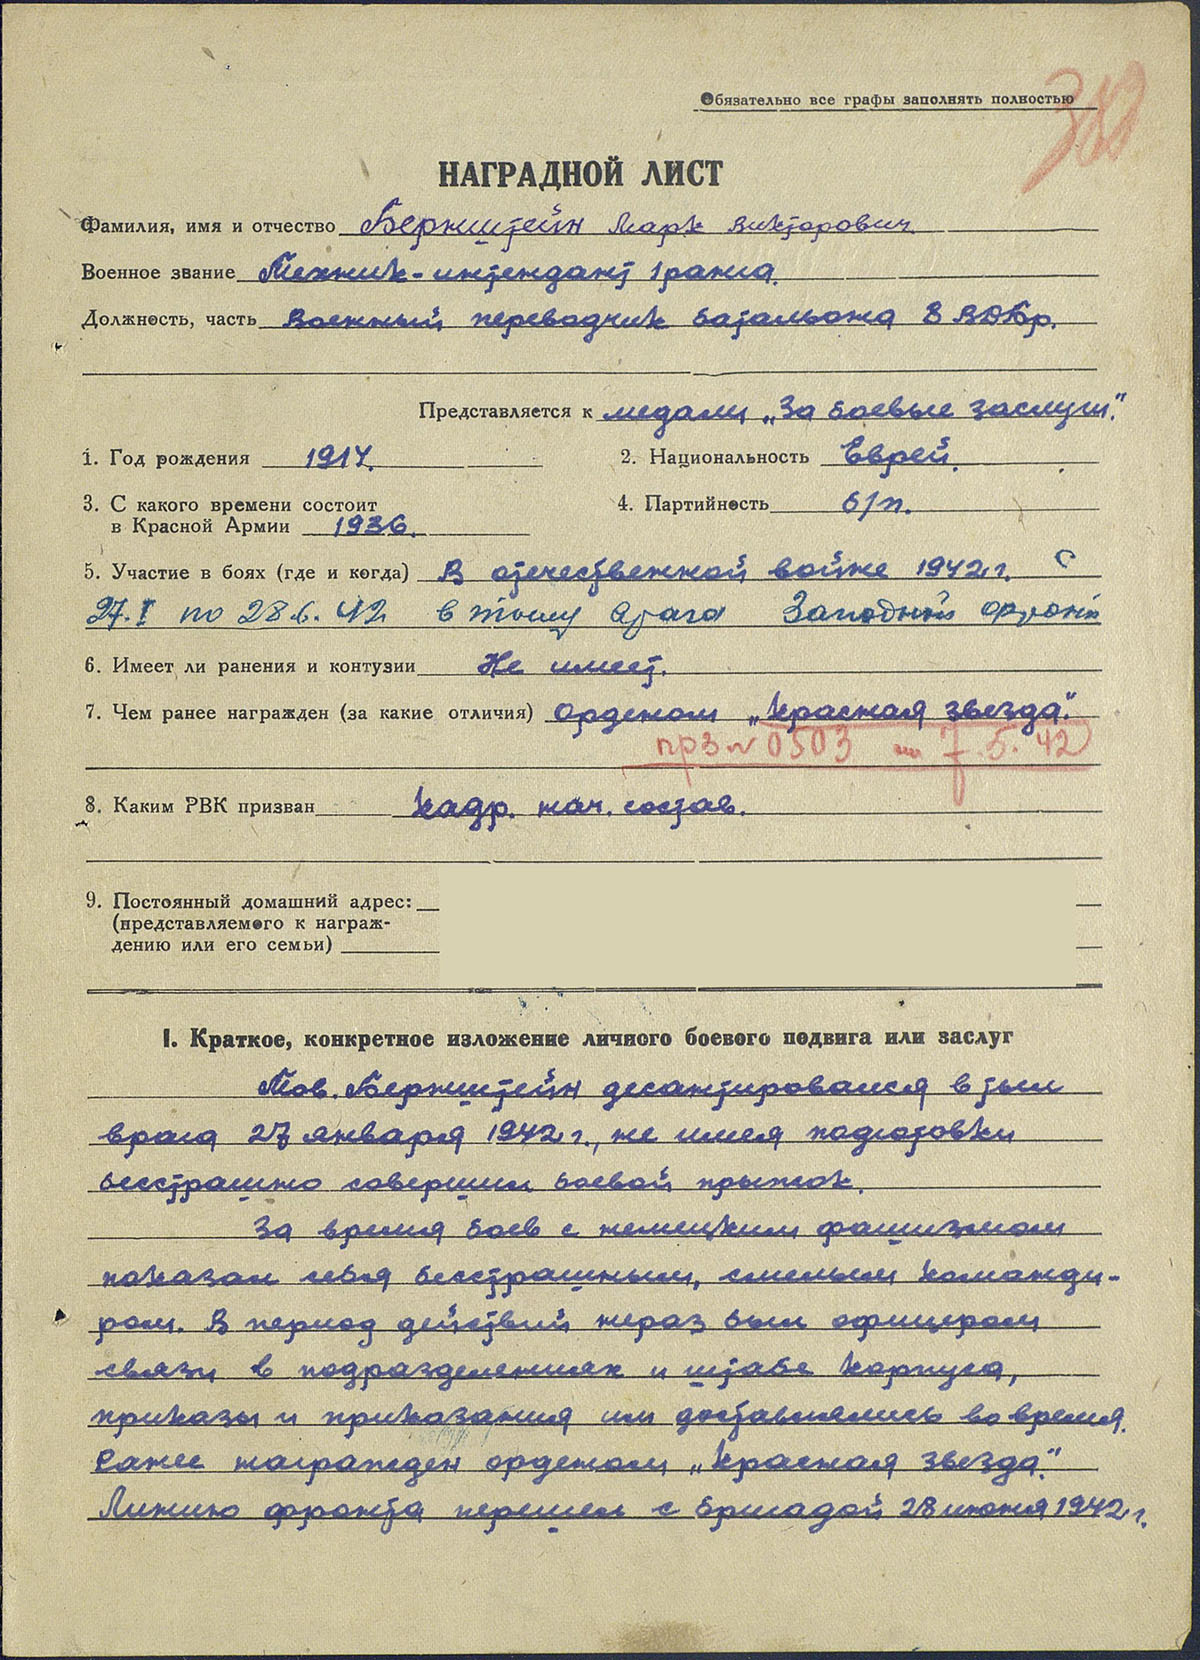 Обязательно все графы заполнять полностью
НАГРАДНОЙ ЛИСТ
Фамилия, имя и отчество Бернштейн Марк Викторович
Военное звание Техник-интендант 1 ранга.
Должность, часть Военный переводчик батальона 8 ВДбр.
Представляется к медали „За боевые заслуги".
1. Год рождения 1917.
2. Национальность Еврей.
3. С какого времени состоит
в Красной Армии 1936.
4. Партийность б/п.
5. Участие в боях (где и когда) В отечественной войне 1942 г. С
27.I по 28.6.42 в тылу врага Западный фронт
6. Имеет ли ранения и контузии Не имеет.
7. Чем ранее награжден (за какие отличия) Орденом „Красная звезда".
прз № 0503 от 7.5.42
8. Каким РВК призван Кадр. нач. состав.
9. Постоянный домашний адрес:
(представляемого к награж-
дению или его семьи)
I. Краткое, конкретное изложение личного боевого подвига или заслуг
Тов. Бернштейн десантировался в тыл
врага 27 января 1942 г., не имея подготовки
бесстрашно совершил боевой прыжок.
За время боев с немецким фашизмом
показал себя бесстрашным, смелым команди-
ром. В период действий нераз был офицером
связи в подразделениях и штабе корпуса,
приказы и приказания им доставлялись во время.
Ранее награжден орденом „Красная звезда".
Линию фронта перешел с бригадой 28 июня 1942 г.